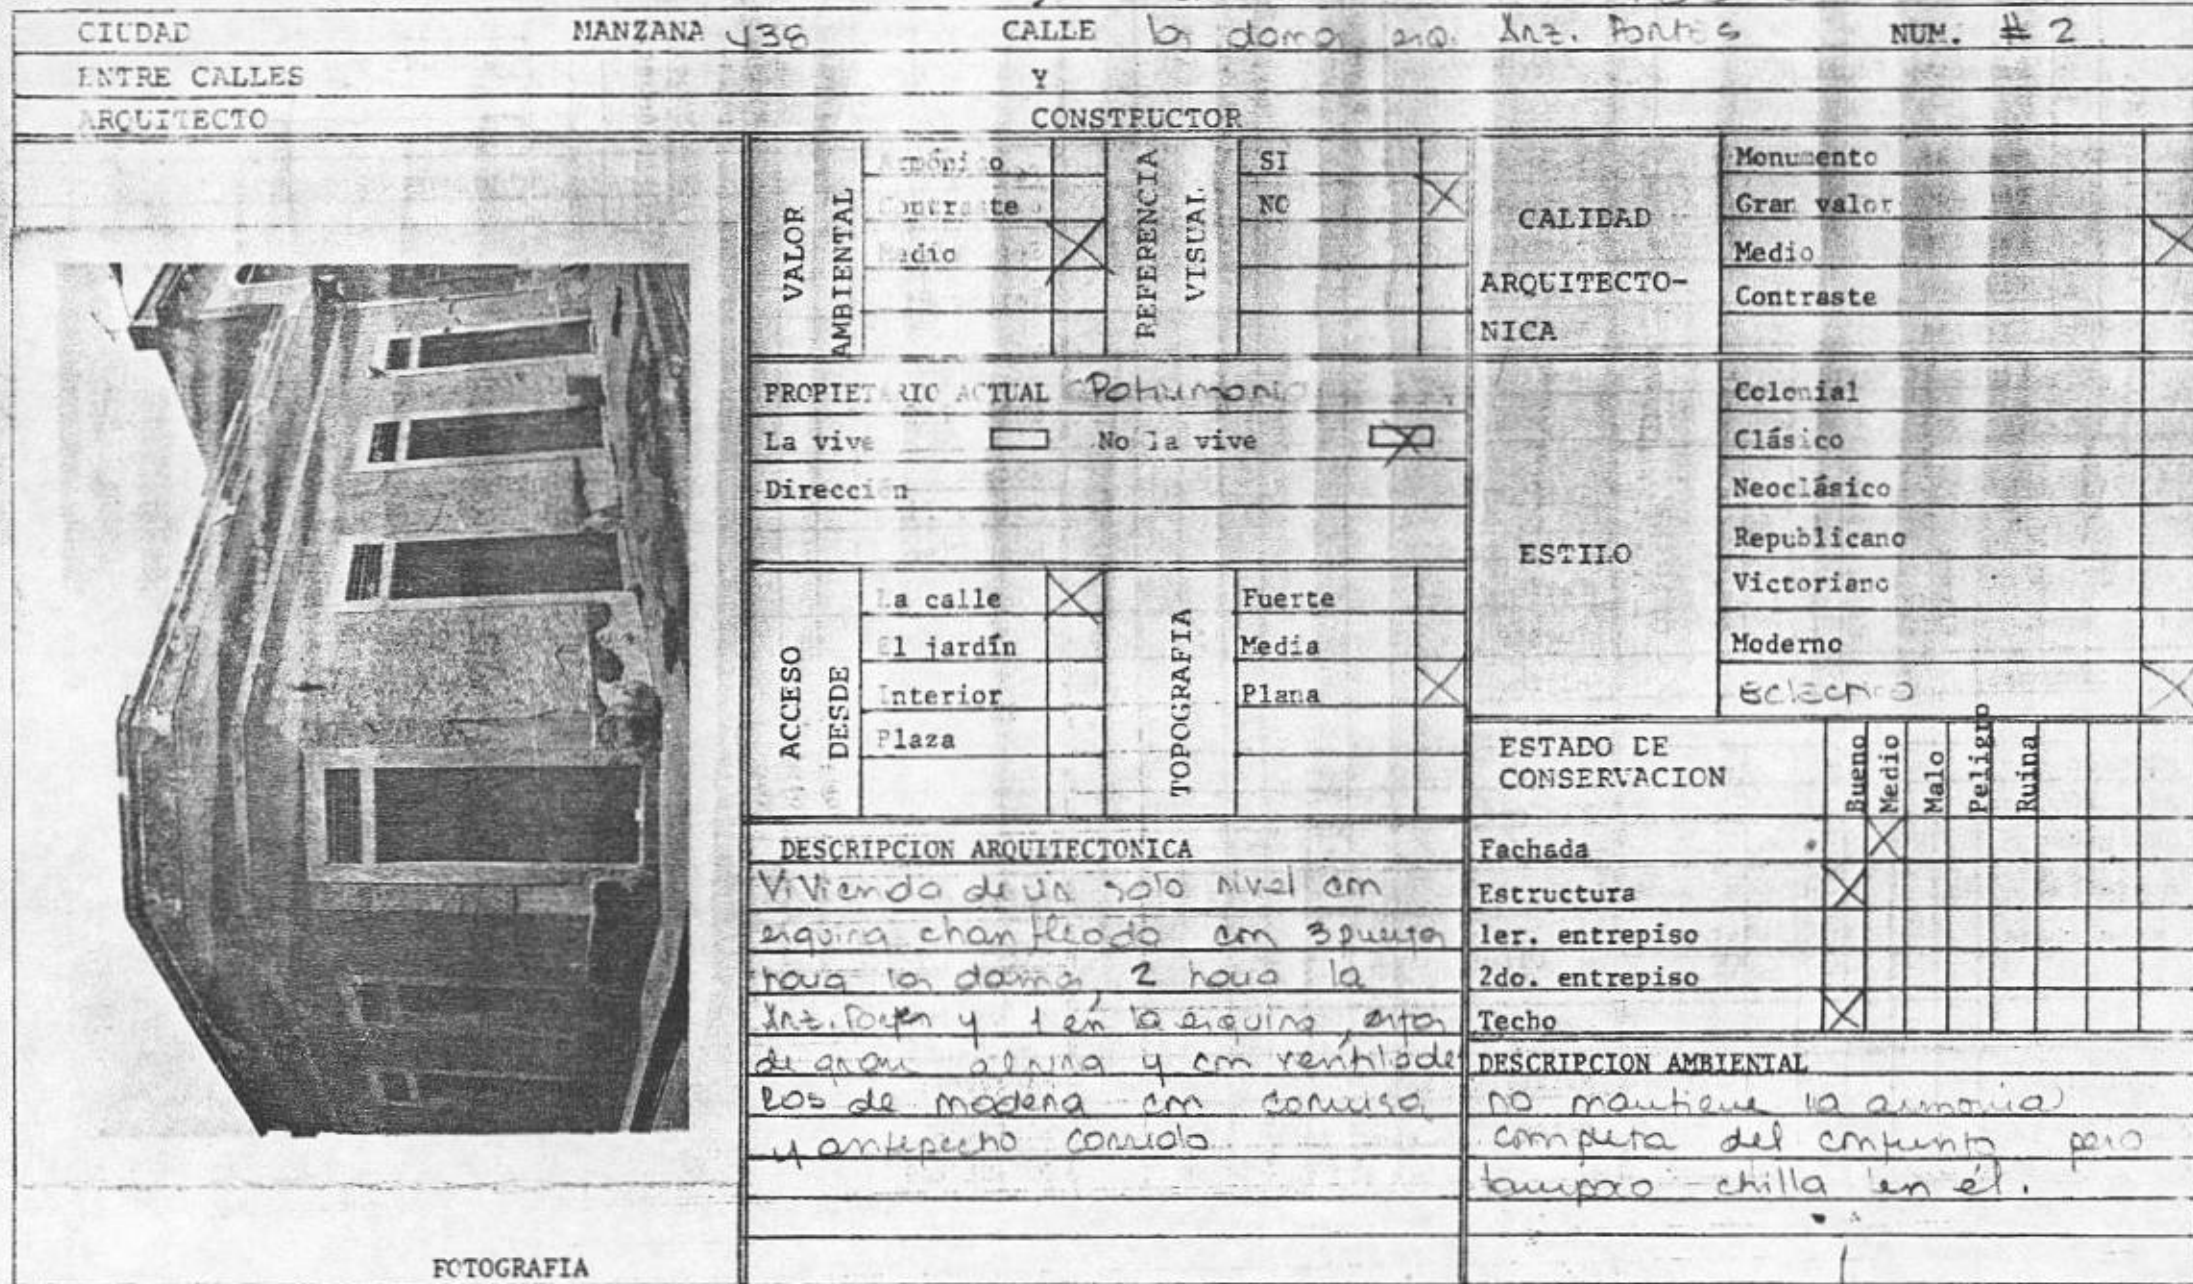 CIUDAD MANZANA 438 CALLE las damas esq. Arz. Portes NUM. # 2
ENTRE CALLES Y
ARQUITECTO CONSTRUCTOR
VALOR AMBIENTAL
Armónico
Contraste
Medio X
REFERENCIA VISUAL
SI
NO X
CALIDAD ARQUITECTO-
NICA
Monumento
Gran valor
Medio X
Contraste
PROPIETARIO ACTUAL Patrimonio
La vive No la vive X
Dirección
ESTILO
Colonial
Clásico
Neoclásico
Republicano
Victoriano
Moderno
eclectico X
ACCESO DESDE
La calle X
El jardín
Interior
Plaza
TOPOGRAFIA
Fuerte
Media
Plana X
ESTADO DE
CONSERVACION
Bueno Medio Malo Peligro Ruina
Fachada X
Estructura X
1er. entrepiso
2do. entrepiso
Techo X
DESCRIPCION ARQUITECTONICA
Vivienda de un solo nivel con
esquina chanfleada con 3 puertas
hacia las damas, 2 hacia la
Arz. Portes y 1 en la esquina, estas
de gran altura y con ventilade
ros de madera con cornisa
y antepecho corrido
DESCRIPCION AMBIENTAL
no mantiene la armonia
completa del conjunto pero
tampoco chilla en él.
FOTOGRAFIA